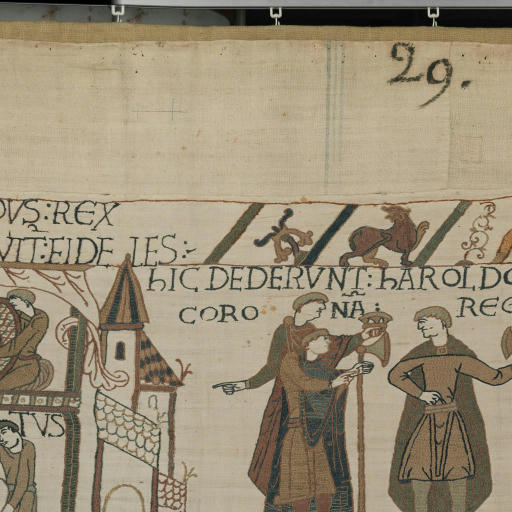 29.
DVS̄: REX
VIT: FIDELES:
hIC DEDERVNT: hAROLDO
CORONA̅:
REG
TVS